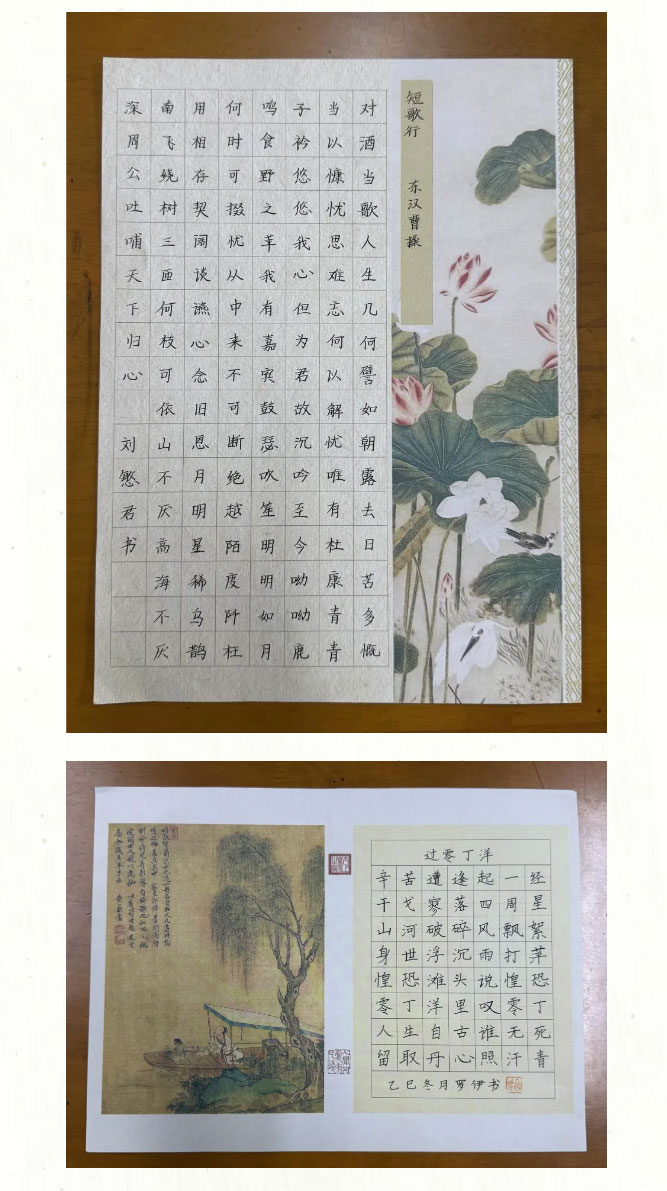 短歌行 东汉曹操
对酒当歌人生几何譬如朝露去日苦多慨
当以慷忧思难忘何以解忧唯有杜康青青
子衿悠悠我心但为君故沉吟至今呦呦鹿
鸣食野之苹我有嘉宾鼓瑟吹笙明明如月
何时可掇忧从中来不可断绝越陌度阡枉
用相存契阔谈讌心念旧恩月明星稀乌鹊
南飞绕树三匝何枝可依山不厌高海不厌
深周公吐哺天下归心 刘君书
过零丁洋
辛苦遭逢起一经
干戈寥落四周星
山河破碎风飘絮
身世浮沉雨打萍
惶恐滩头说惶恐
零丁洋里叹零丁
人生自古谁无死
留取丹心照汗青
乙巳冬月罗伊书